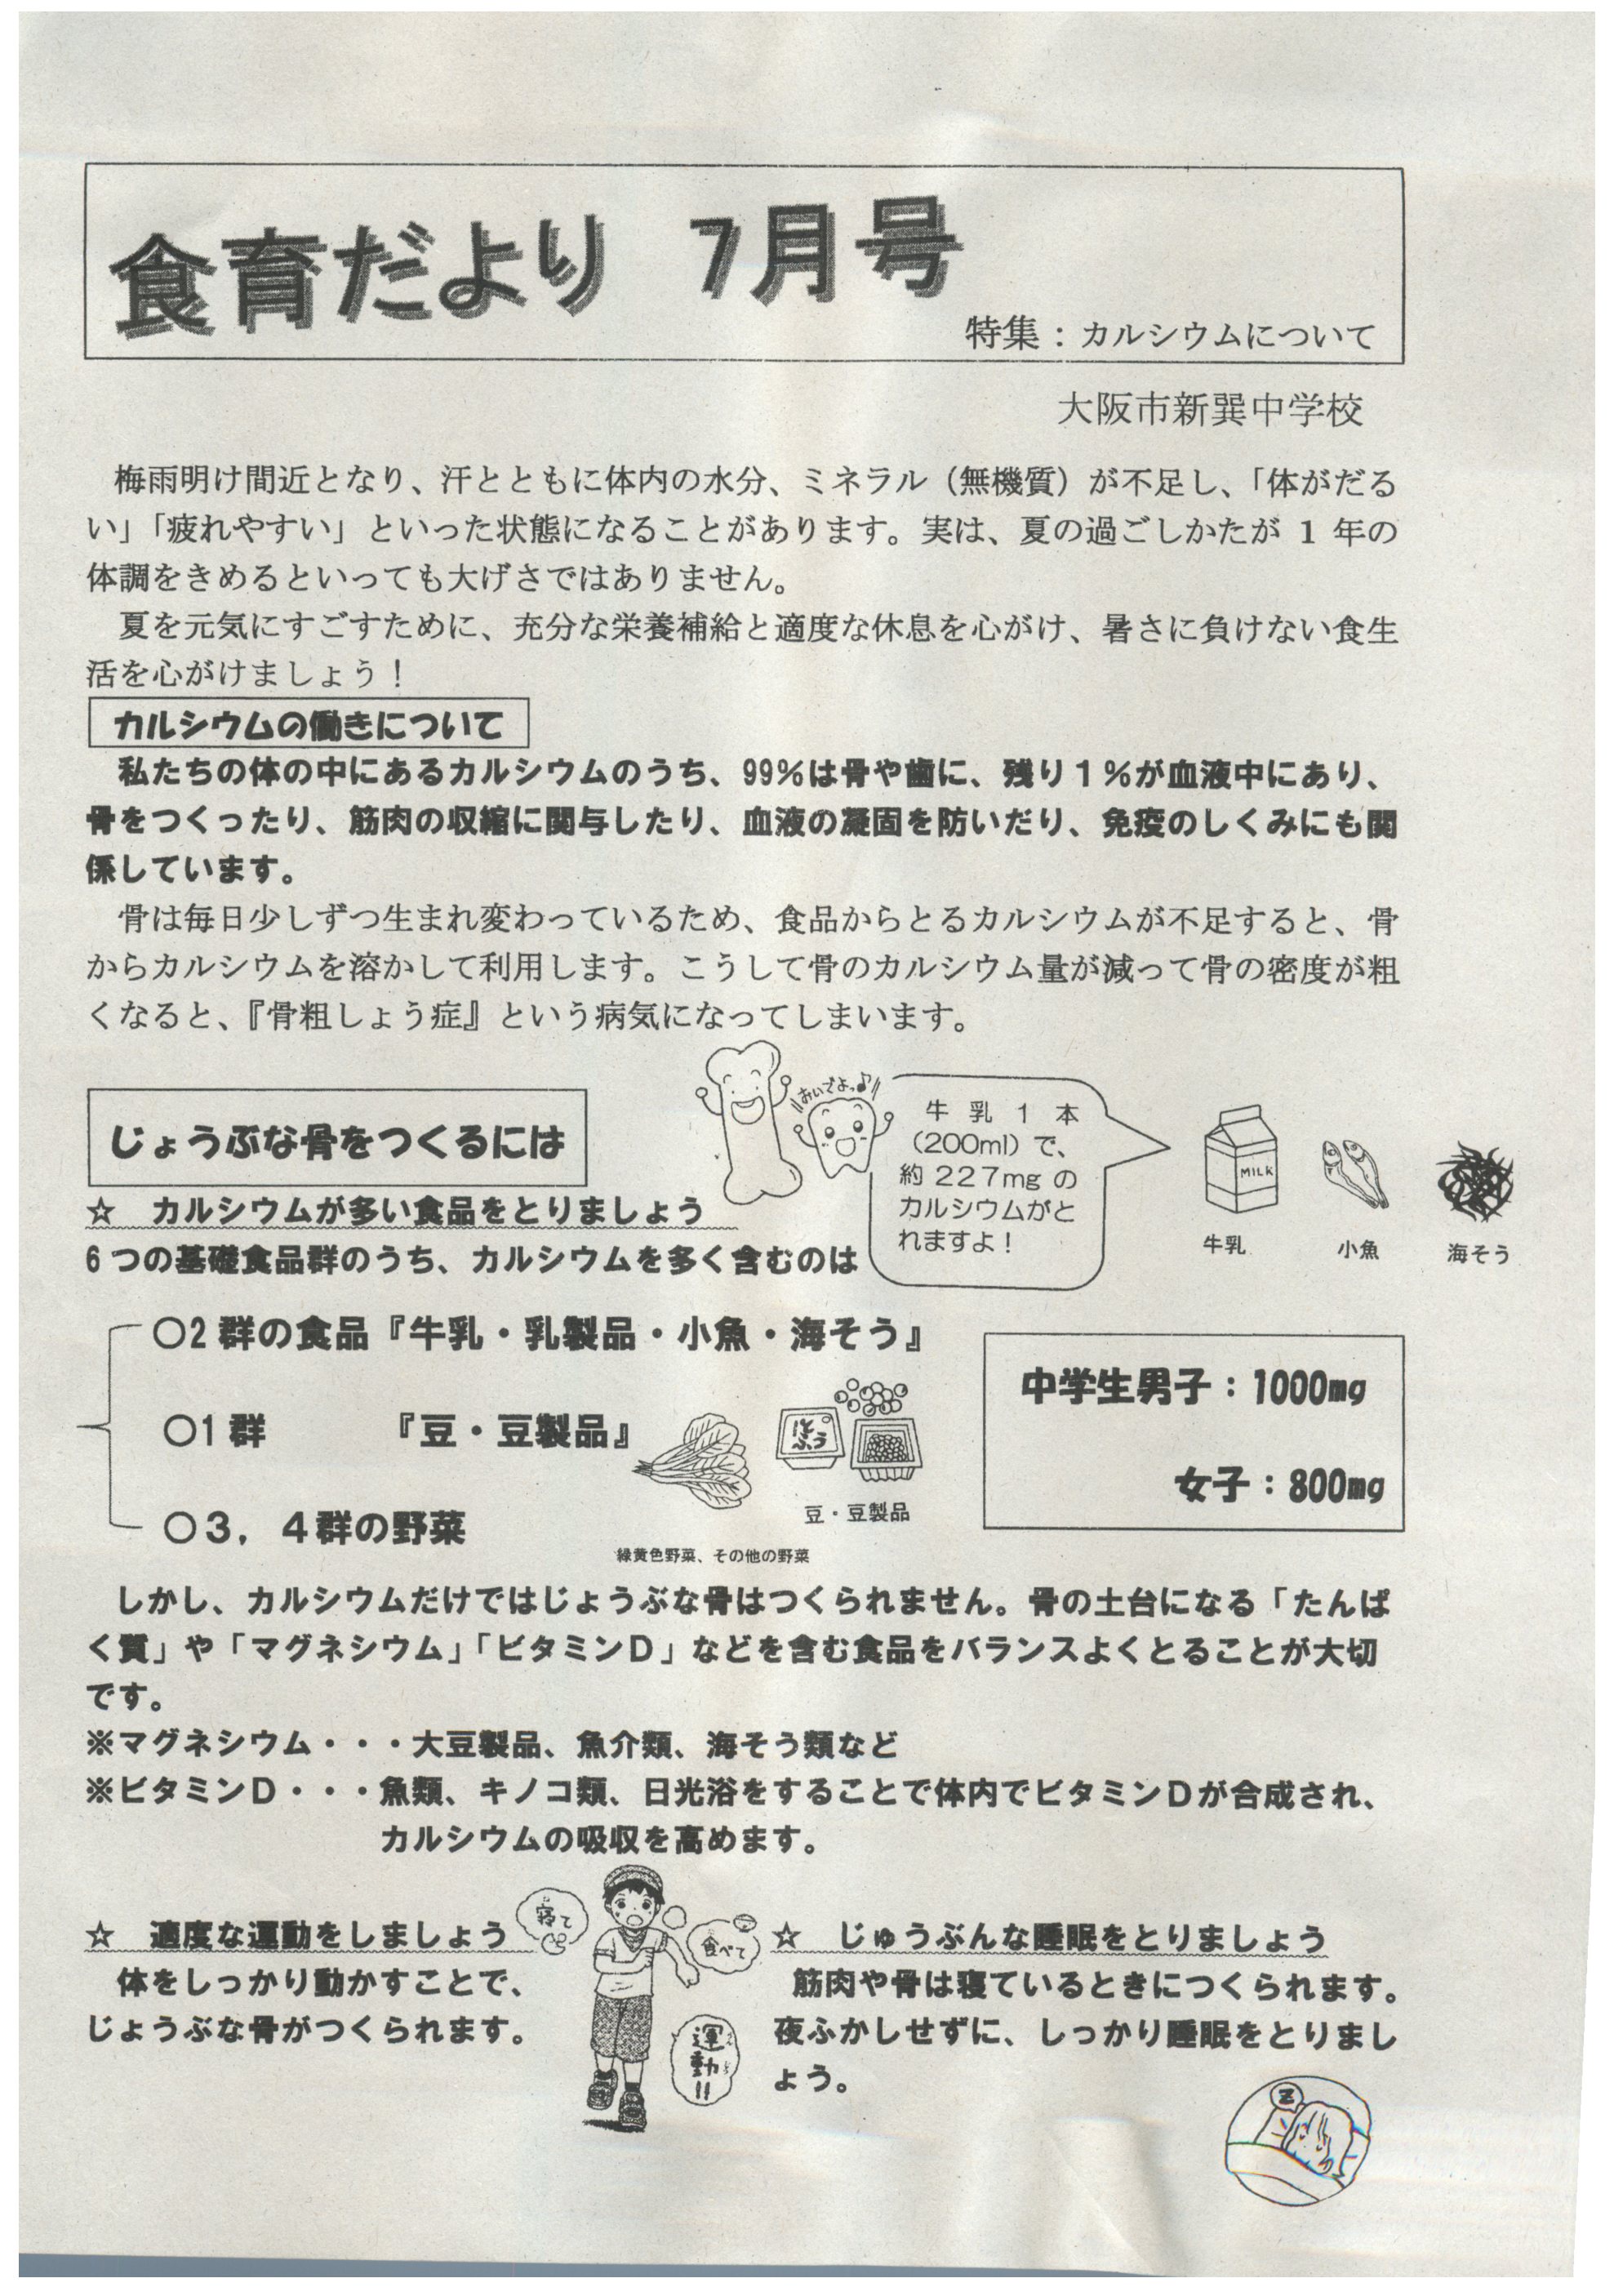 食育だより 7月号
特集：カルシウムについて
大阪市新巽中学校
梅雨明け間近となり、汗とともに体内の水分、ミネラル（無機質）が不足し、「体がだる
い」「疲れやすい」といった状態になることがあります。実は、夏の過ごしかたが 1 年の
体調をきめるといっても大げさではありません。
夏を元気にすごすために、充分な栄養補給と適度な休息を心がけ、暑さに負けない食生
活を心がけましょう！
カルシウムの働きについて
私たちの体の中にあるカルシウムのうち、99％は骨や歯に、残り１％が血液中にあり、
骨をつくったり、筋肉の収縮に関与したり、血液の凝固を防いだり、免疫のしくみにも関
係しています。
骨は毎日少しずつ生まれ変わっているため、食品からとるカルシウムが不足すると、骨
からカルシウムを溶かして利用します。こうして骨のカルシウム量が減って骨の密度が粗
くなると、『骨粗しょう症』という病気になってしまいます。
じょうぶな骨をつくるには
おいでよっ♪
牛乳１本
（200ml）で、
約 227mg の
カルシウムがと
れますよ！
MILK
牛乳
小魚
海そう
☆ カルシウムが多い食品をとりましょう
6 つの基礎食品群のうち、カルシウムを多く含むのは
○2 群の食品『牛乳・乳製品・小魚・海そう』
○1 群 『豆・豆製品』
○３，４群の野菜
とうふ
豆・豆製品
緑黄色野菜、その他の野菜
中学生男子：1000mg
女子：800mg
しかし、カルシウムだけではじょうぶな骨はつくられません。骨の土台になる「たんぱ
く質」や「マグネシウム」「ビタミンＤ」などを含む食品をバランスよくとることが大切
です。
※マグネシウム・・・大豆製品、魚介類、海そう類など
※ビタミンＤ・・・魚類、キノコ類、日光浴をすることで体内でビタミンＤが合成され、
カルシウムの吸収を高めます。
☆ 適度な運動をしましょう
体をしっかり動かすことで、
じょうぶな骨がつくられます。
寝て
食べて
運動!!
☆ じゅうぶんな睡眠をとりましょう
筋肉や骨は寝ているときにつくられます。
夜ふかしせずに、しっかり睡眠をとりまし
ょう。
Z